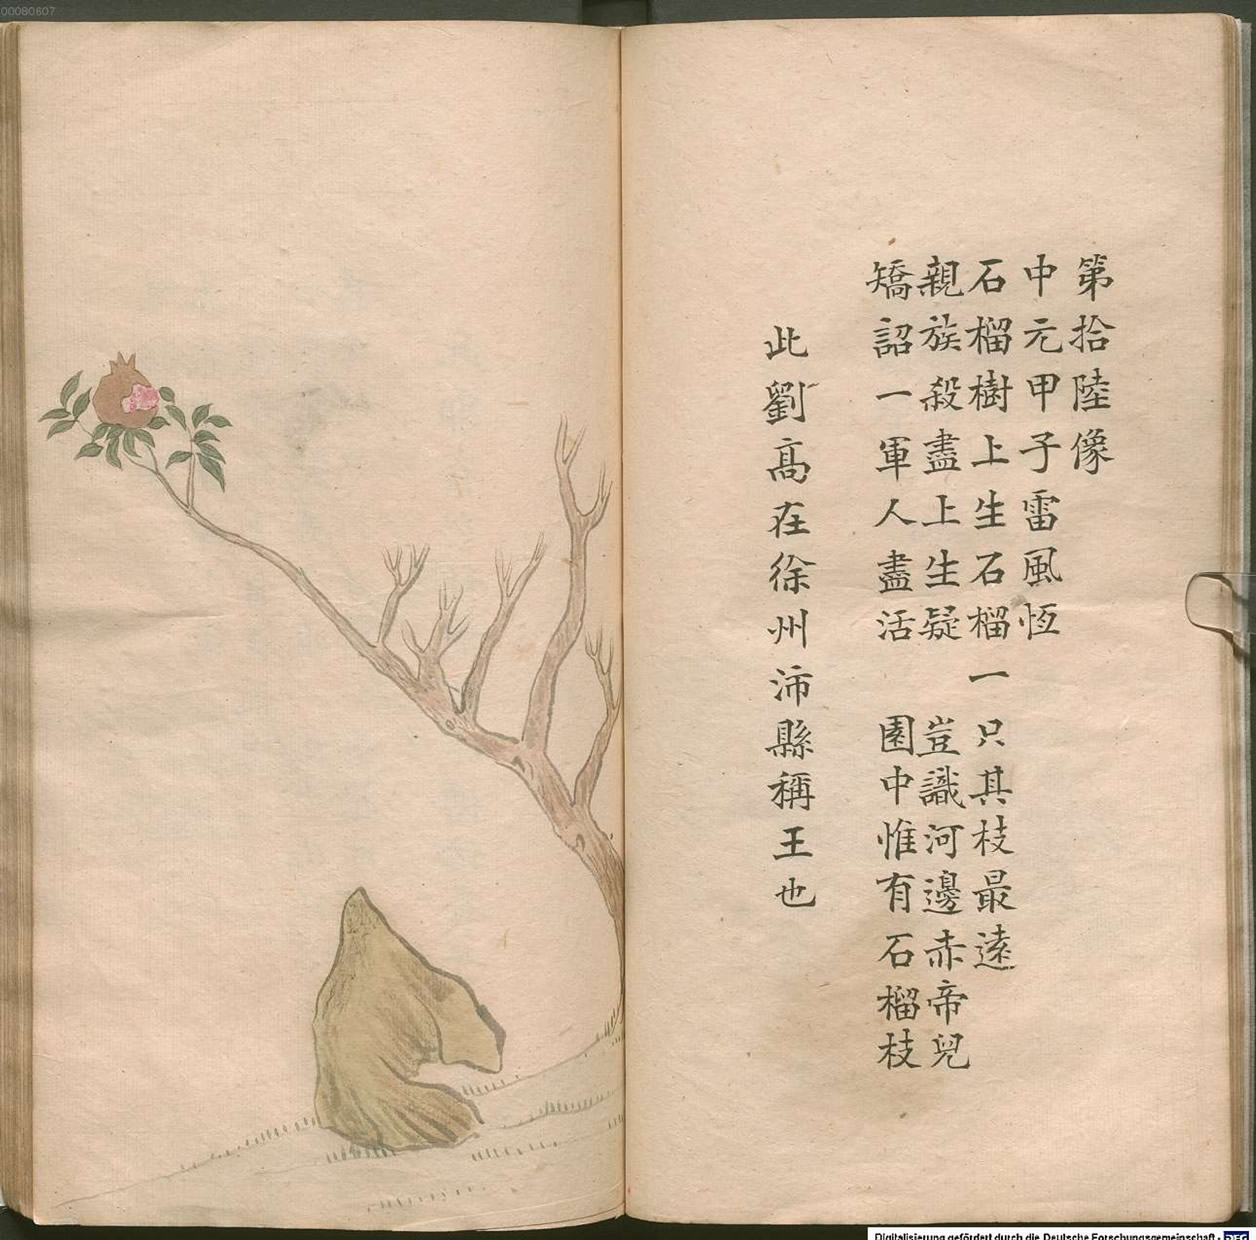 00080607
第拾陸像
中元甲子雷風恆
石榴樹上生石榴一只其枝最遠
親族殺盡上生疑 豈識河邊赤帝兒
矯詔一軍人盡活 園中惟有石榴枝
此劉高在徐州沛縣稱王也
Digitalisierung gefördert durch die Deutsche Forschungsgemeinschaft - DFG